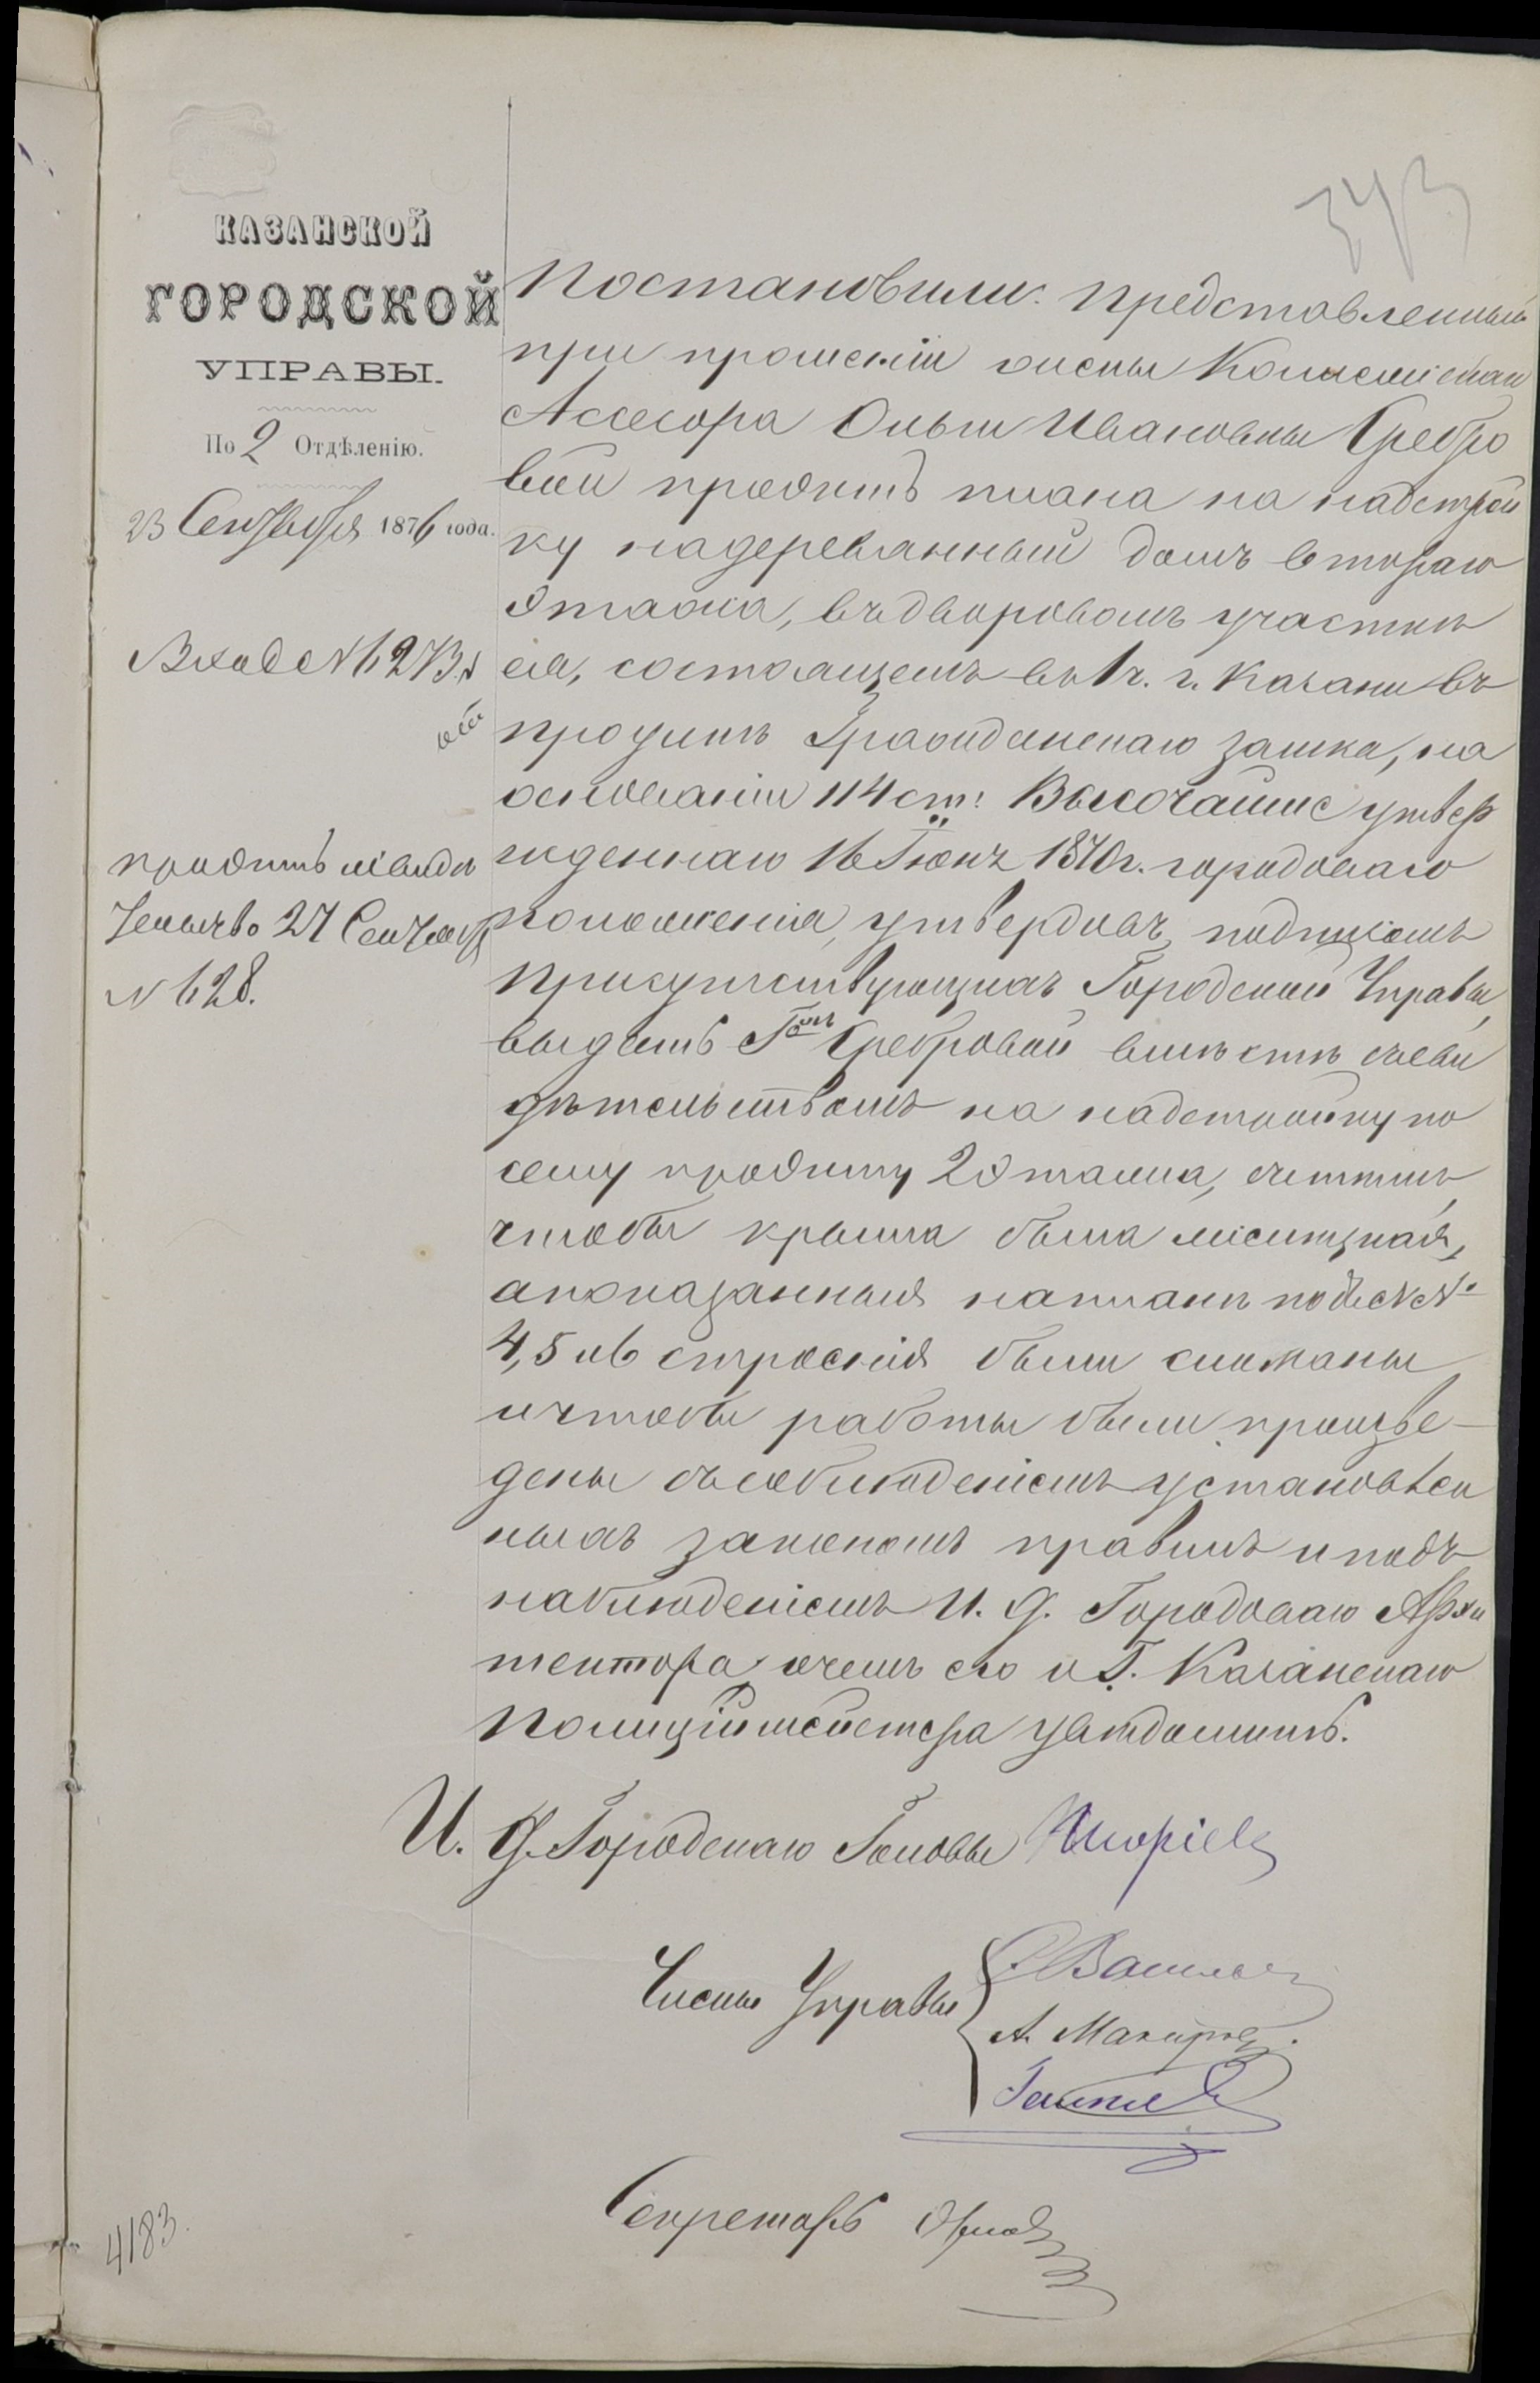 343
КАЗАНСКОЙ
ГОРОДСКОЙ
УПРАВЫ.
По 2 Отдѣленію.
23 Сентября 1876 года.
Вход № 6273.
проэктъ и свидѣ
тельство 27 Сентября
№ 628.
Постановили: представленный
при прошеніи жены Коллежскаго
Ассесора Ольги Ивановны Сребро
вой проэктъ плана на надстрой
ку надеревянный домъ втораго
этажа, въ дворовомъ участкѣ
ея, состоящемъ въ 1 ч. г. Казани въ
проулкѣ Гражданскаго замка, на
основаніи 114 ст. Высочайше утвер
жденнаго 16 Іюня 1870 г. городоваго
положенія, утвердивъ подписомъ
присутствующихъ Городской Управы,
выдать Г-жѣ Сребровой вмѣстѣ съ сви
дѣтельствомъ на надстройку по
сему проэкту 2 этажа, съ тѣмъ,
чтобы крыша была желѣзная,
а показанныя на планѣ подъ №№
4, 5 и 6 строенія были сломаны
и чтобы работы были произве-
дены съ соблюденіемъ установлен
ныхъ закономъ правилъ и подъ
наблюденіемъ И. д. Городоваго Архи
тектора, о чемъ его и Г. Казанскаго
Полицiймейстера увѣдомить.
И. д. Городскаго Головы
Члены Управы
Секретарь
4183.